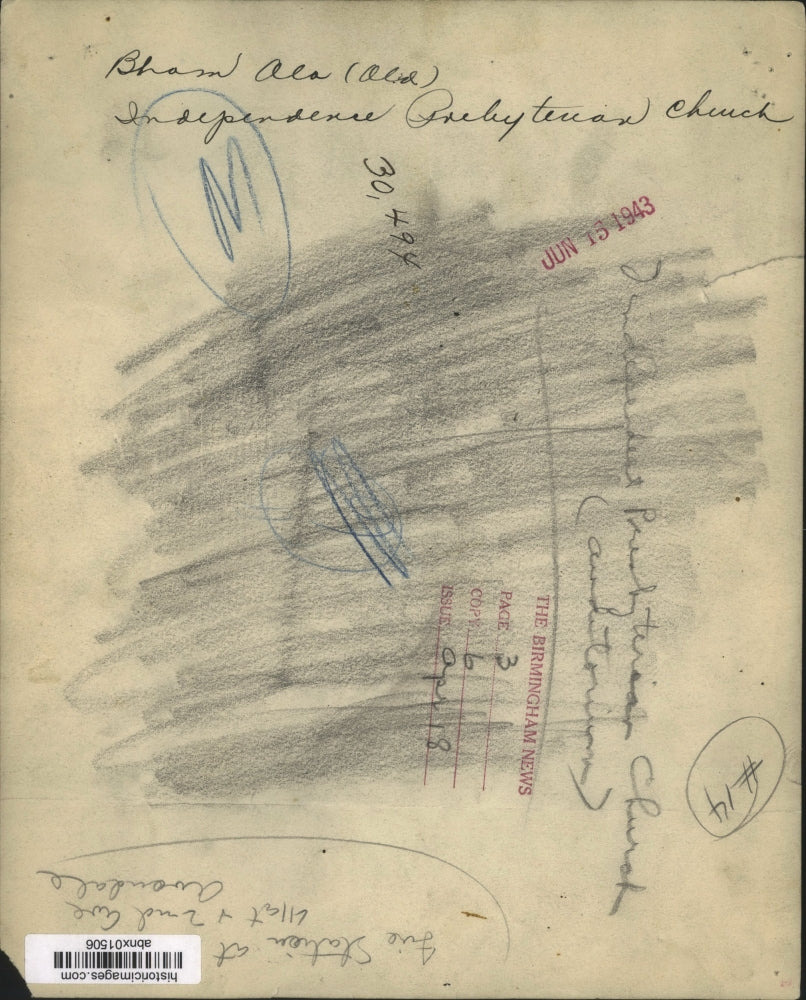 Bham Ala (Old)
Independence Presbyterian Church
M
30,494
JUN 15 1943
Independent Presbyterian Church
(auditorium)
THE BIRMINGHAM NEWS
PAGE 3
COPY 6
ISSUE Apr 18
#14
Fire Station at
41st & 2nd Ave
Avondale
historicimages.com
abnx01506